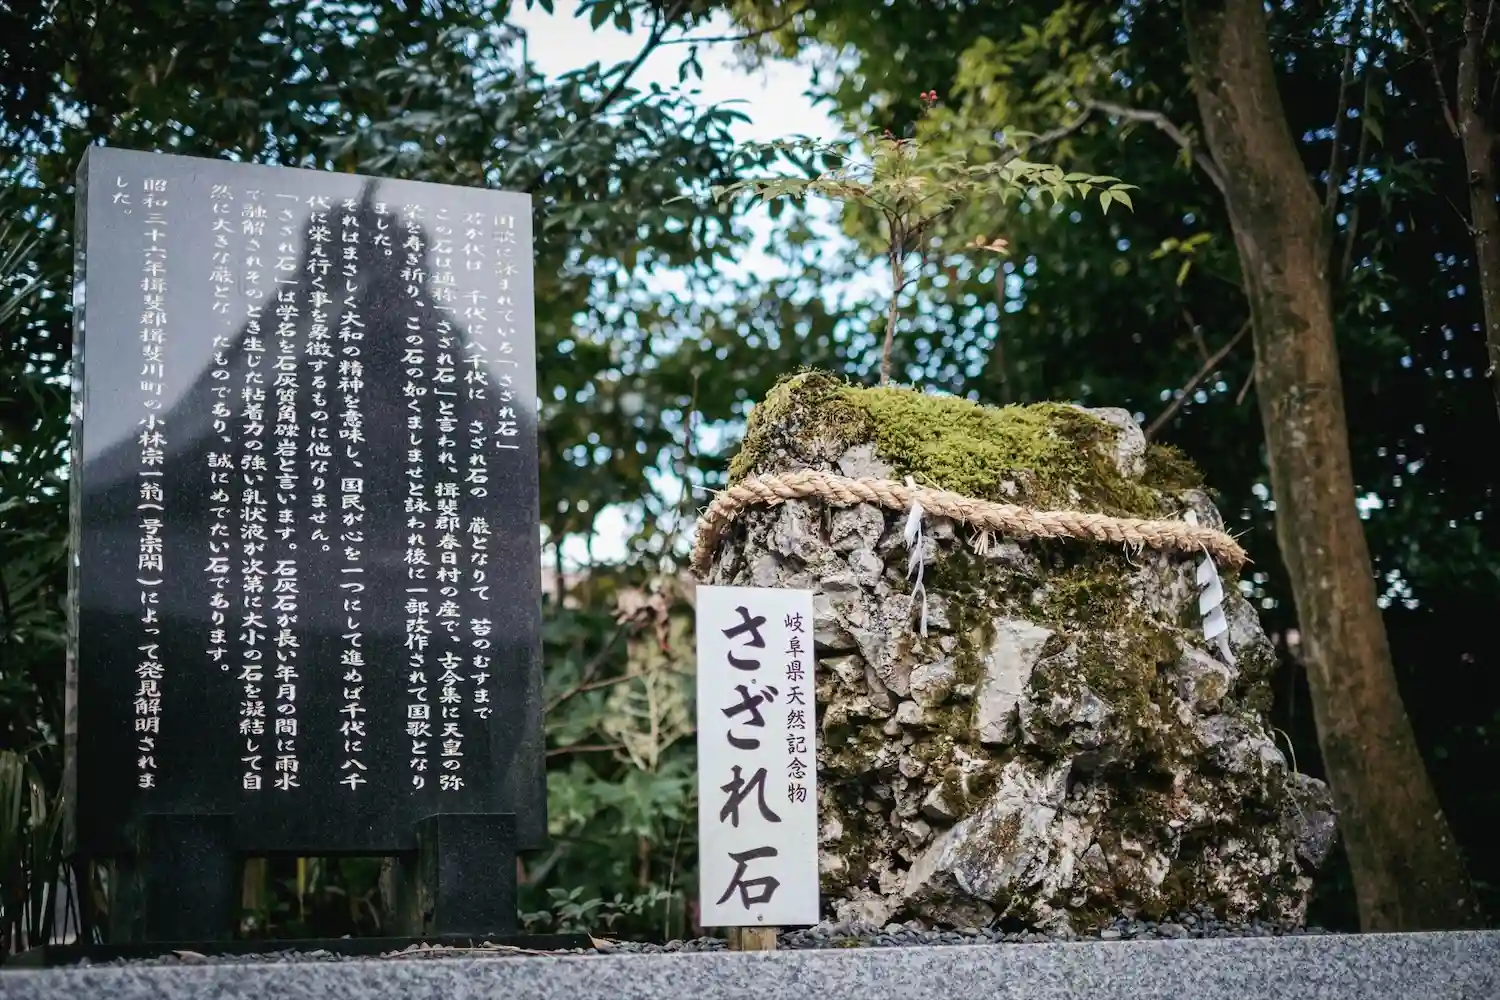 国歌に詠まれている「さざれ石」
君が代は 千代に八千代に さざれ石の 巌となりて 苔のむすまで
この石は通称「さざれ石」と言われ、揖斐郡春日村の産で、古今集に天皇の弥
栄を寿ぎ祈り、この石の如くましませと詠われ後に一部改作されて国歌となり
ました。
それはまさしく大和の精神を意味し、国民が心を一つにして進めば千代に八千
代に栄え行く事を象徴するものに他なりません。
「さざれ石」は学名を石灰質角礫岩と言います。石灰石が長い年月の間に雨水
で融解されそのとき生じた粘着力の強い乳状液が次第に大小の石を凝結して自
然に大きな巌とな たものであり、誠にめでたい石であります。
昭和三十六年揖斐郡揖斐川町の小林宗一翁(号宗閑)によって発見解明されま
した。
岐阜県天然記念物
さざれ石